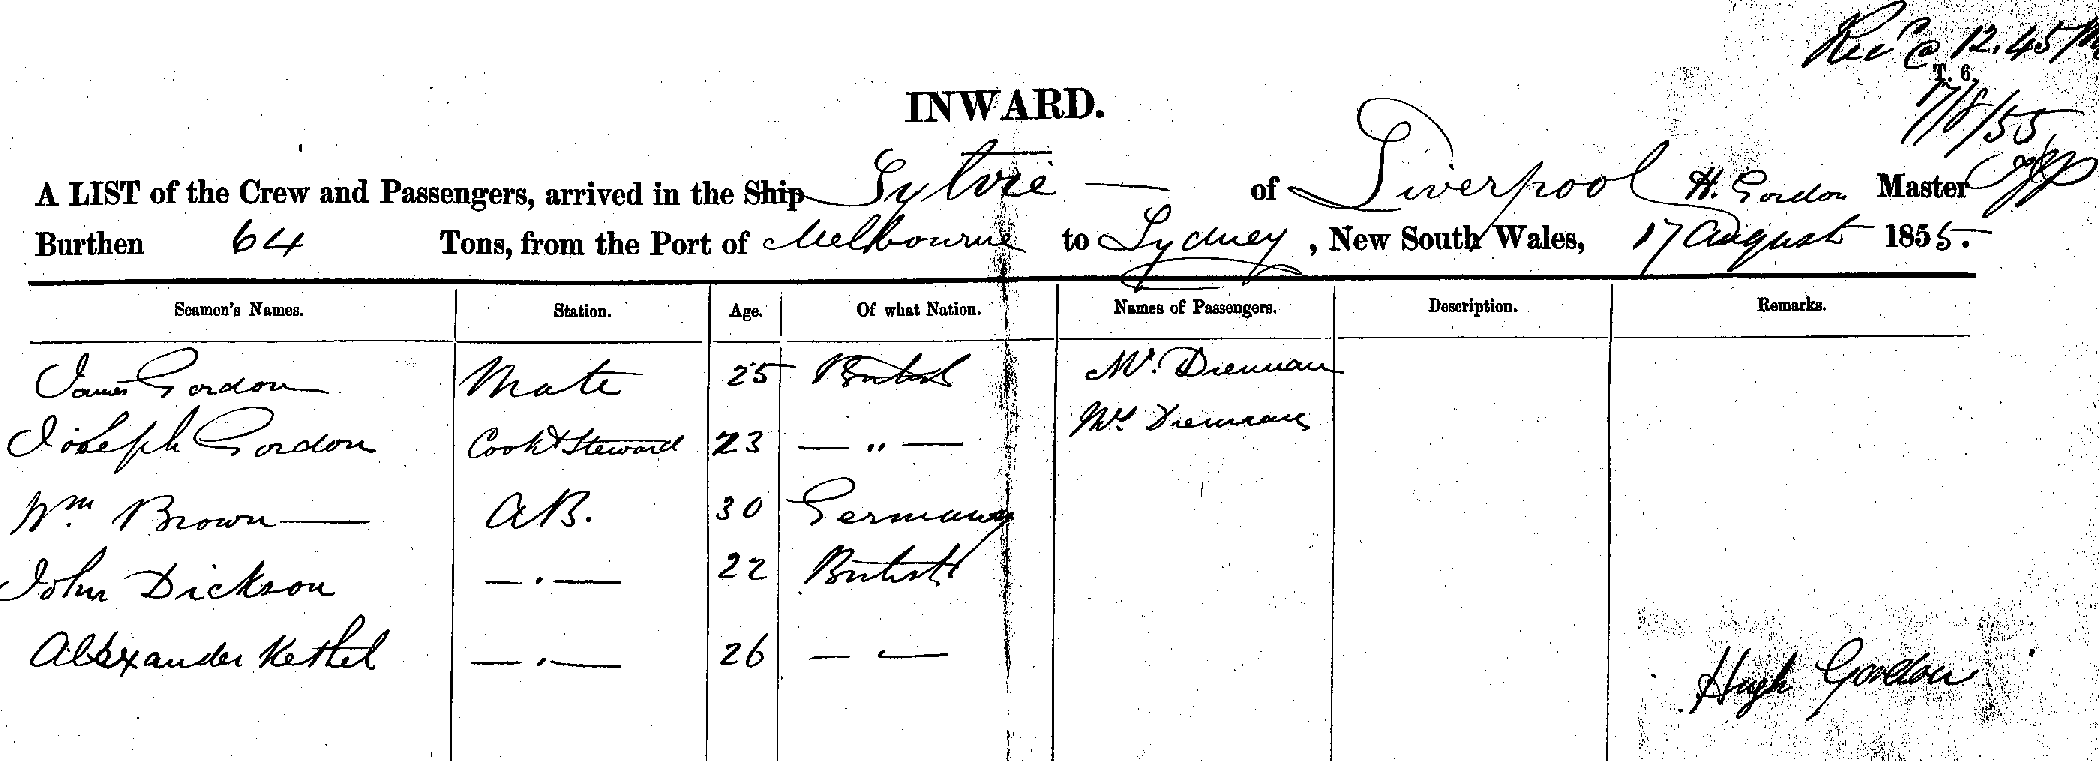 Recd @ 12.45 PM
T. 6.
17/8/55
INWARD.
A LIST of the Crew and Passengers, arrived in the Ship Sylvie — of Liverpool H. Gordon Master
Burthen 64 Tons, from the Port of Melbourne to Sydney, New South Wales, 17 August 1855.
Seamen's Names. Station. Age. Of what Nation. Names of Passengers. Description. Remarks.
James Gordon Mate 25 British Mr. Drennan
Joseph Gordon Cook & Steward 23 — „ — Mrs Drennan
Wm Brown — A.B. 30 Germany
John Dickson — . — 22 British
Alexander Kethel — . — 26 — . —
Hugh Gordon